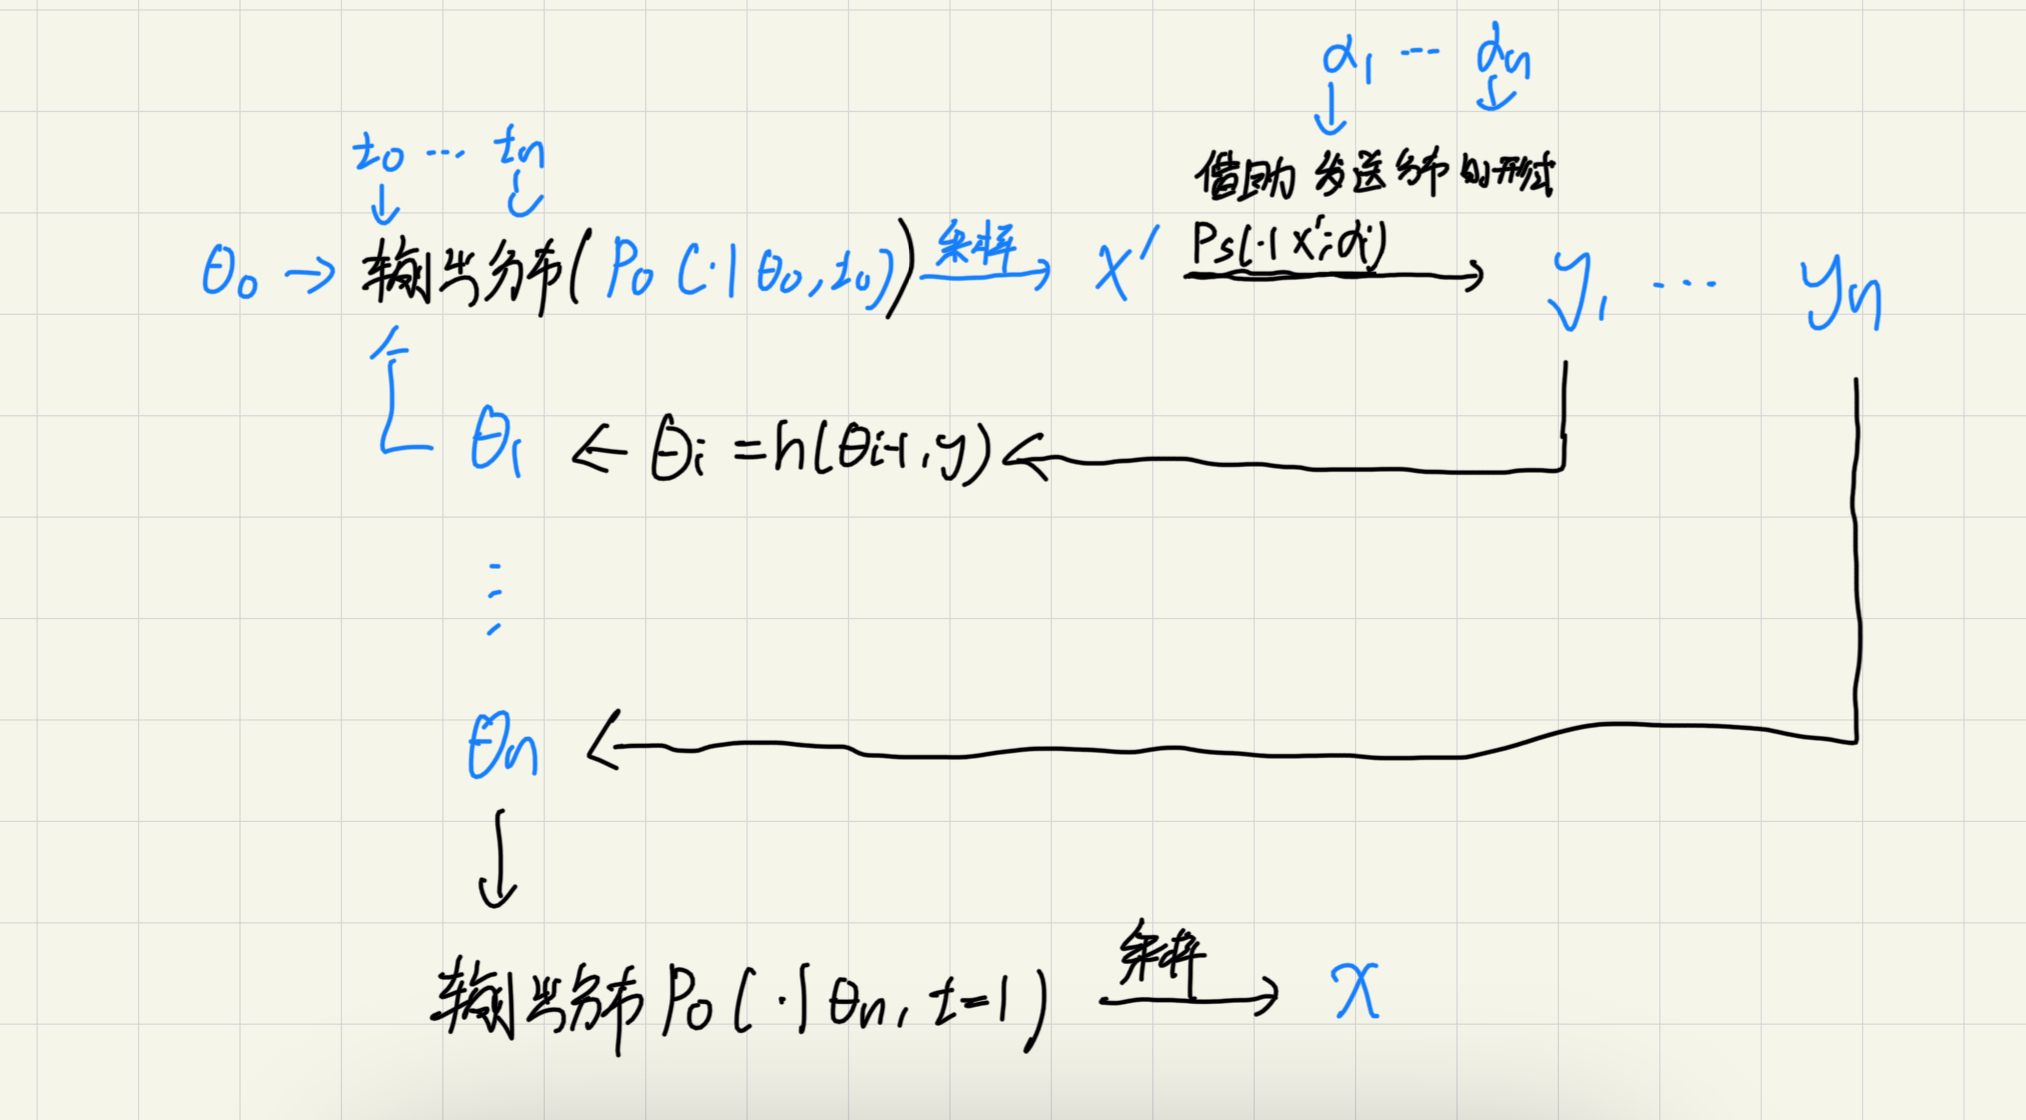 α₁ ... αₙ
t₀ ... tₙ
借助发送分布的形式
θ₀ → 输出分布(P₀(·|θ₀,t₀)) 采样 x' Ps(·|x';αᵢ) y₁ ... yₙ
θ₁ ← θᵢ = h(θᵢ₋₁,y)
⋮
θₙ
输出分布 P₀(·|θₙ, t=1) 采样 x